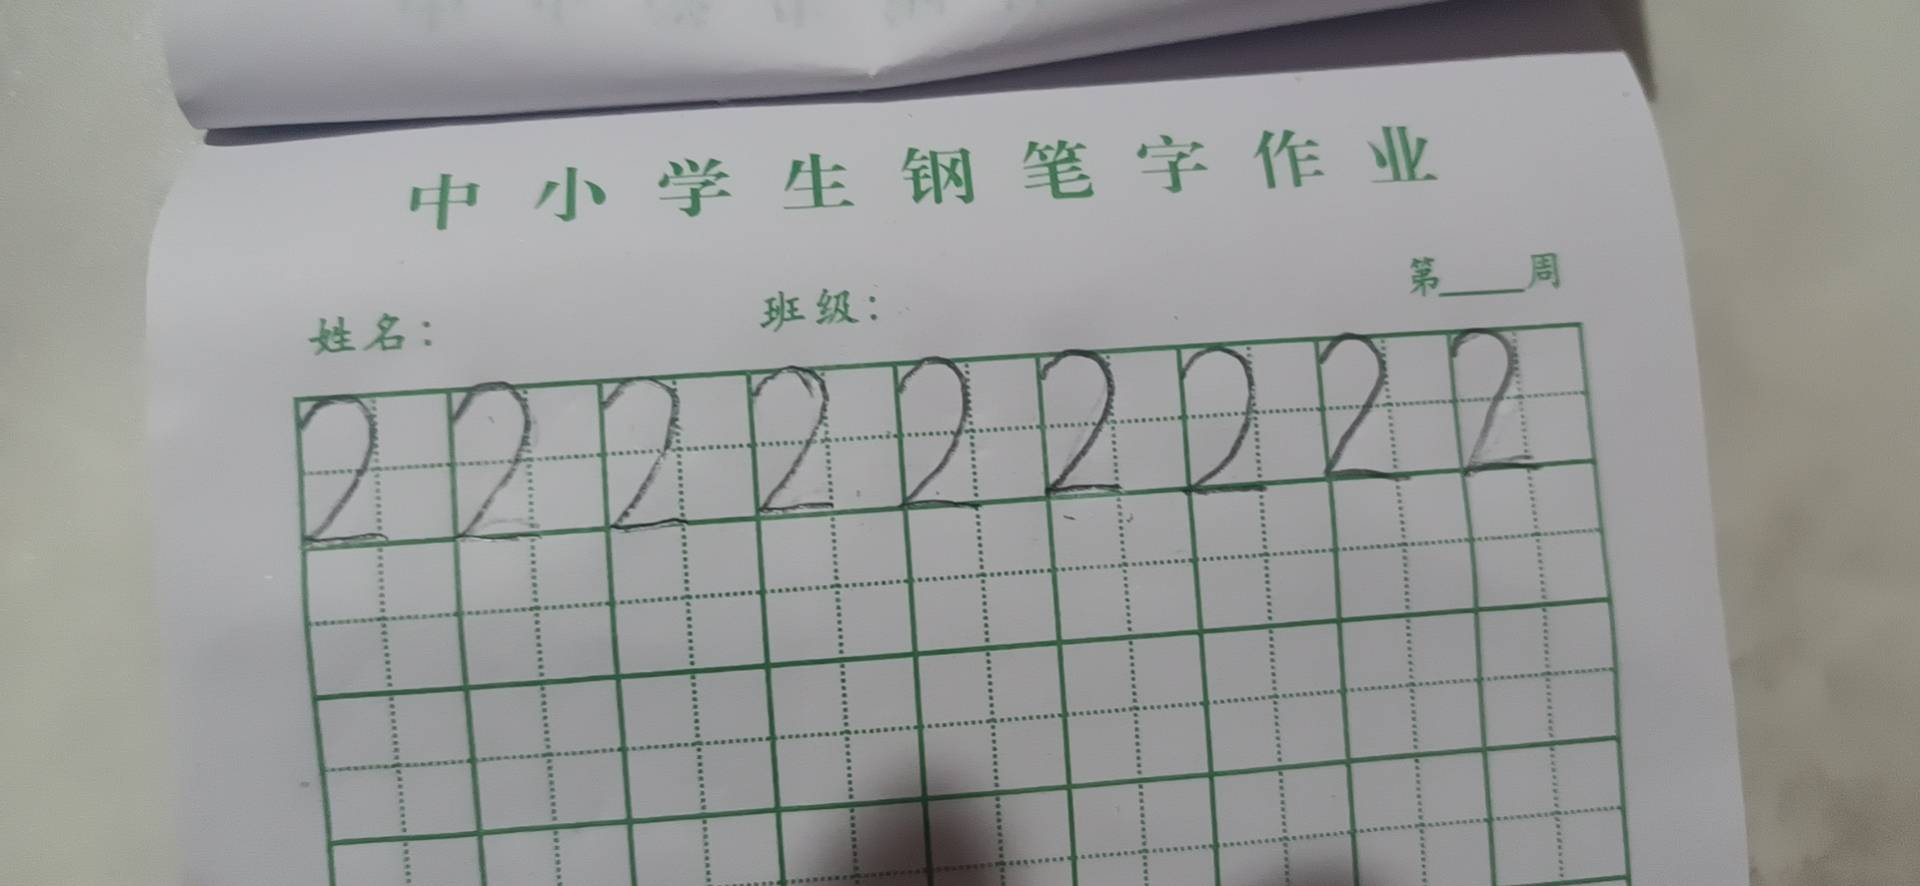 中小学生钢笔字作业
姓名： 班级： 第____周
2 2 2 2 2 2 2 2 2